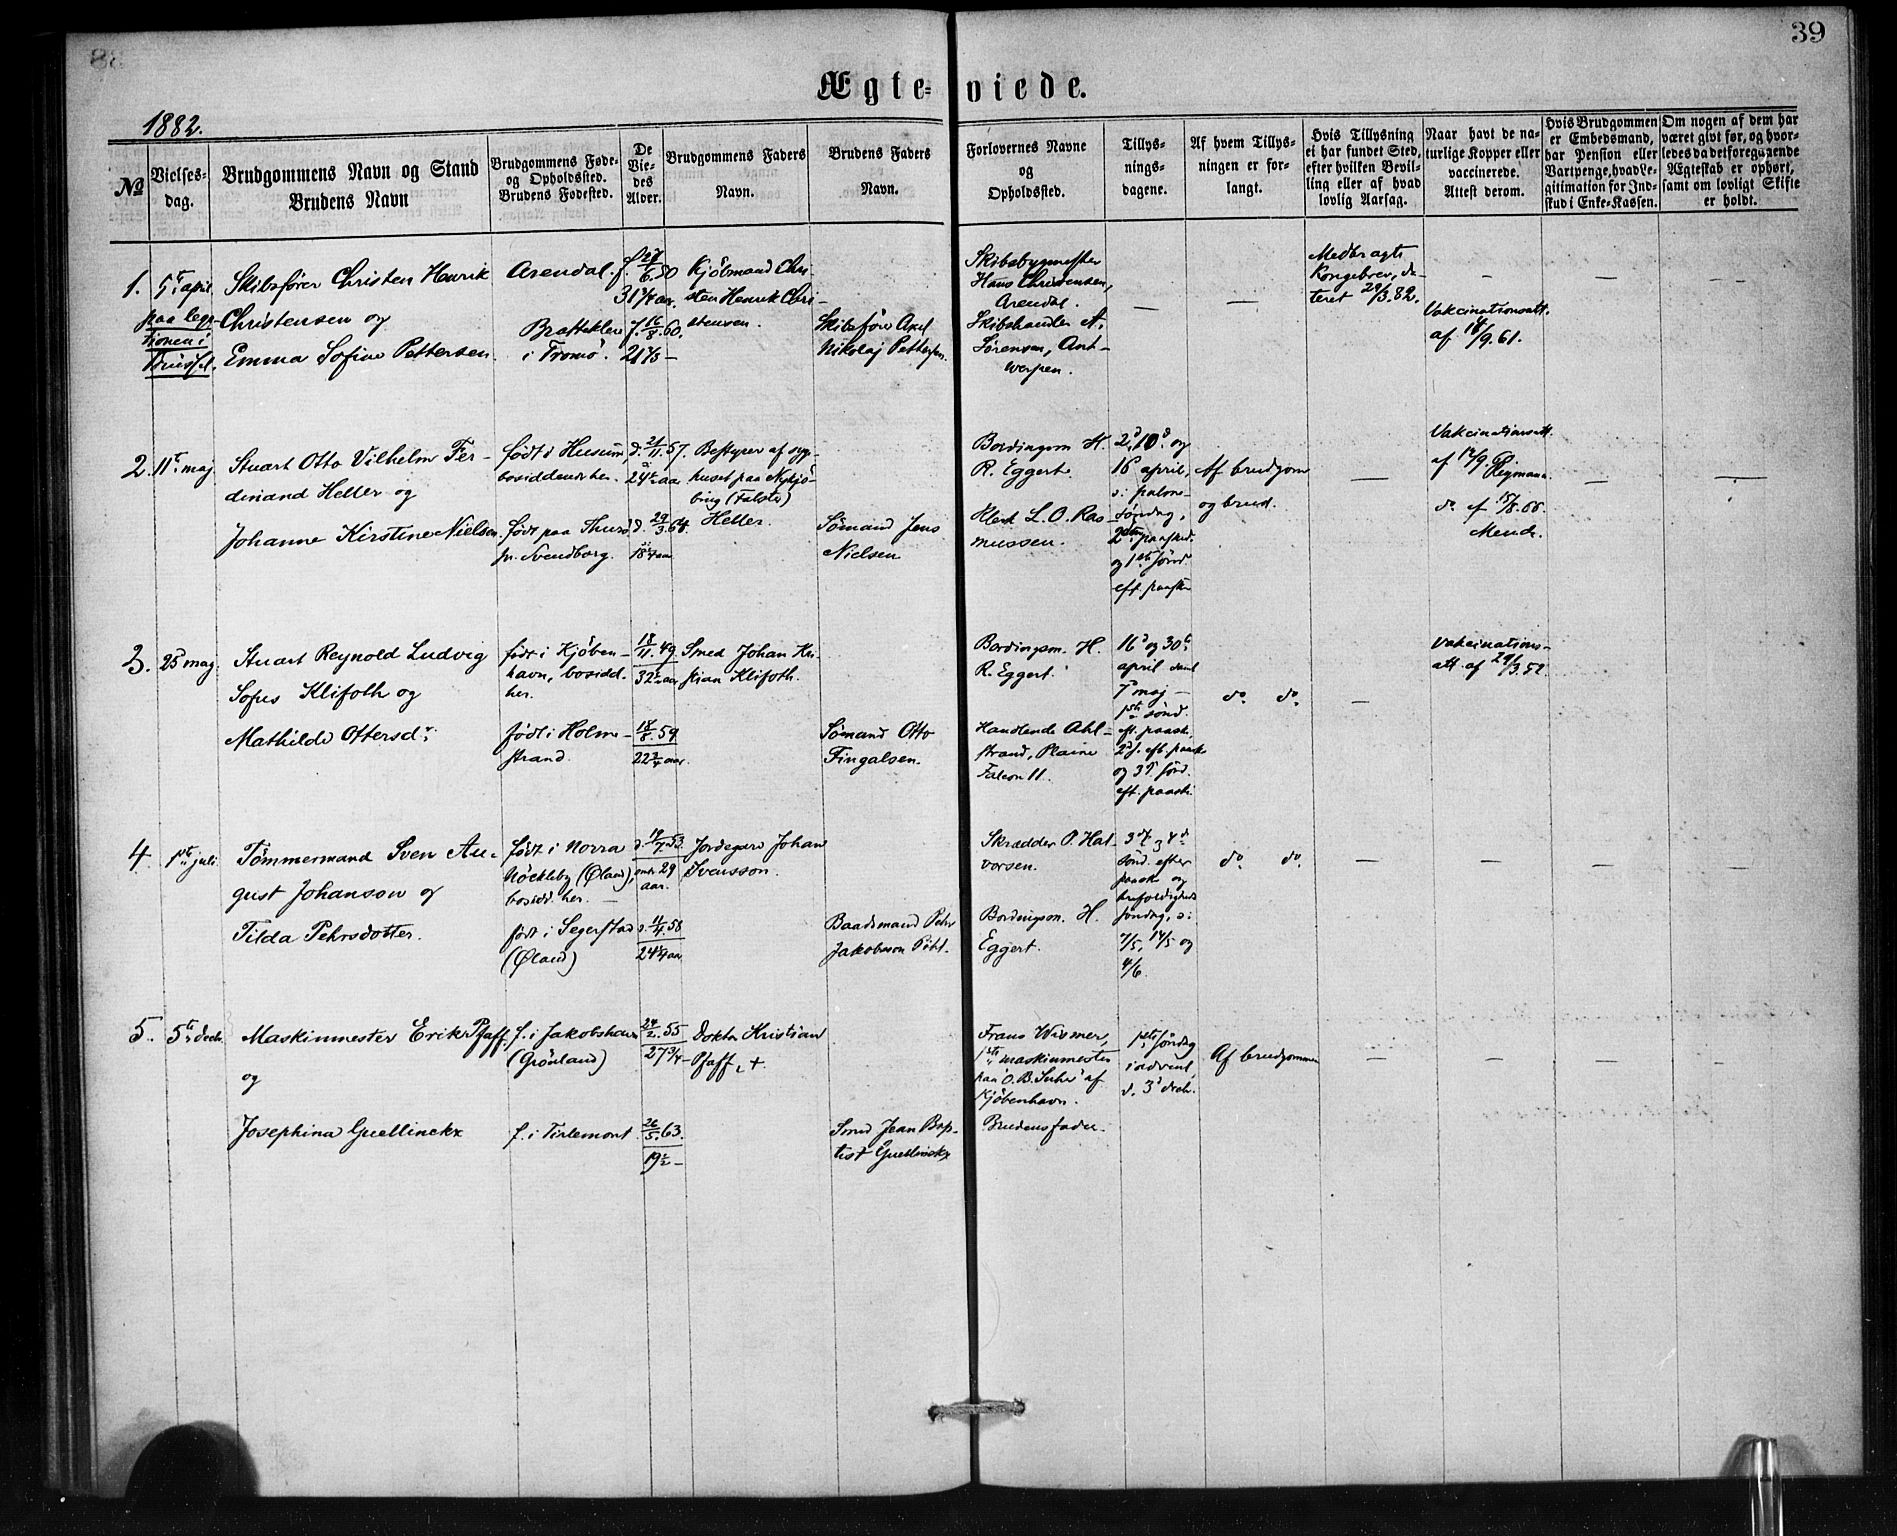 39
Ægte-viede.
1882.
№
Vielses-
dag.
Brudgommens Navn og Stand
Brudens Navn
Brudgommens Føde-
og Opholdssted.
Brudens Fødested.
De
Vie-
des
Alder.
Brudgommens Faders
Navn.
Brudens Faders
Navn.
Forlovernes Navne
og
Opholdssted.
Tillys-
nings-
dagene.
Af hvem Tillys-
ningen er for-
langt.
Hvis Tillysning
ei har fundet Sted,
efter hvilken Bevil-
ling eller af hvad
lovlig Aarsag.
Naar havt de na-
turlige Kopper eller
vaccinerede.
Attest derom.
Hvis Brudgommen
er Embedsmand,
har Pension eller
Vartpenge, hvad Le-
gitimation for Ind-
skud i Enke-Kassen.
Om nogen af dem har
været givt før, og hvor-
ledes da det foregaaende
Ægteskab er ophørt,
samt om lovligt Skifte
er holdt.
1.
5te april
paa lega-
tionen i
Brüssel.
Skibsfører Christen Henrik
Christensen og
Emma Sofine Pettersen
Arendal.
Brattekler
i Tromö.
f. 27/6.50
31 3/4 aar.
f. 16/8.60.
21 2/3 –
Kjöbmand Chri-
sten Henrik Chri-
stensen.
Skibsfører Axel
Nikolaj Pettersen.
Skibsbygmester
Hans Christensen,
Arendal.
Skibshandler A.
Sørensen, Ant-
werpen.
—
—
Medbragte
Kongebrev, da-
teret 29/3.82.
–
Vakcinationsatt.
af 18/9.61.
–
–
2.
11te maj
Stuart Otto Vilhelm Fer-
dinand Heller og
Johanne Kirstine Nielsen
født i Husum,
bosiddende her.
født paa Thurö
pr. Svendborg.
d. 21/11.57.
24 1/2 aar
d. 29/3.64.
18 1/4 aar
Bestyrer af syge-
huset paa Nykjö-
bing (Falster)
Heller.
Sømand Jens
Nielsen
Bordingsm H.
R. Eggert.
Klerk L. O. Ras-
mussen.
2d, 10d og
16 april,
ɔ: palme-
søndag,
2den paaskd.
og 1ste sønd.
eft. paaske
Af brudgom
og brud.
—
Vakcinationsatt.
af 12/9
Heymann.
do af 15/8.66
Mende.
—
—
3.
25d maj.
Stuart Reynold Ludvig
Sofus Klifoth og
Mathilde Ottersdr.
født i Kjöben-
havn, bosidd.
her.
født i Holme-
strand.
18/11.49.
32 1/2 aar
18/8.59
22 3/4 aar.
Smed Johan Kri-
stian Klifoth.
Sømand Otto
Fingalsen.
Bordingsm. H.
R. Eggert.
Handlende Ahl-
strand, Plaine
Falcon 11.
16d og 30te
april samt
7d maj –
1ste sønd.
eft. paaske,
2d s. eft. paask
og 3d sønd.
eft. paaske.
do do.
–
Vakcinations-
att. af 29/3.52.
4.
1ste juli
Tömmermand Sven Au-
gust Johansson og
Tilda Pehrsdotter.
født i Norra
Nöckleby (Øland),
bosidd. her.
født i Segerstad
(Øland)
d. 19/7.53
omtr. 29
aar.
d. 11/4.58
24 1/4 aar
Jordegare Johan
Svensson.
Baadsmand Pehr
Jakobsson
Skrædder O. Hal-
vorsen.
Bordingsm. H.
Eggert.
3d og 4d
sönd. efter
paaske og
trefoldigheds
søndag, ɔ:
7/5, 14/5 og
4/6.
do do.
—
—
—
—
5.
5te decb.
Maskinmester Erik Pfaff.
og
Josephina Guellinckx
f. i Jakobshavn
(Grönland)
f. i Tirlemont
24/2.55
27 3/4 –
26/5.63.
19 1/2 –
Doktor Kristian
Pfaff, +
Smed Jean Bap-
tist Guellinckx
Frans Wismer,
1ste maskinmester
paa "O. B. Suhr" af
Kjöbenhavn.
Brudens fader.
1ste søndag
i advent,
d. 3d decb.
Af brudgommen
—
—
—
—